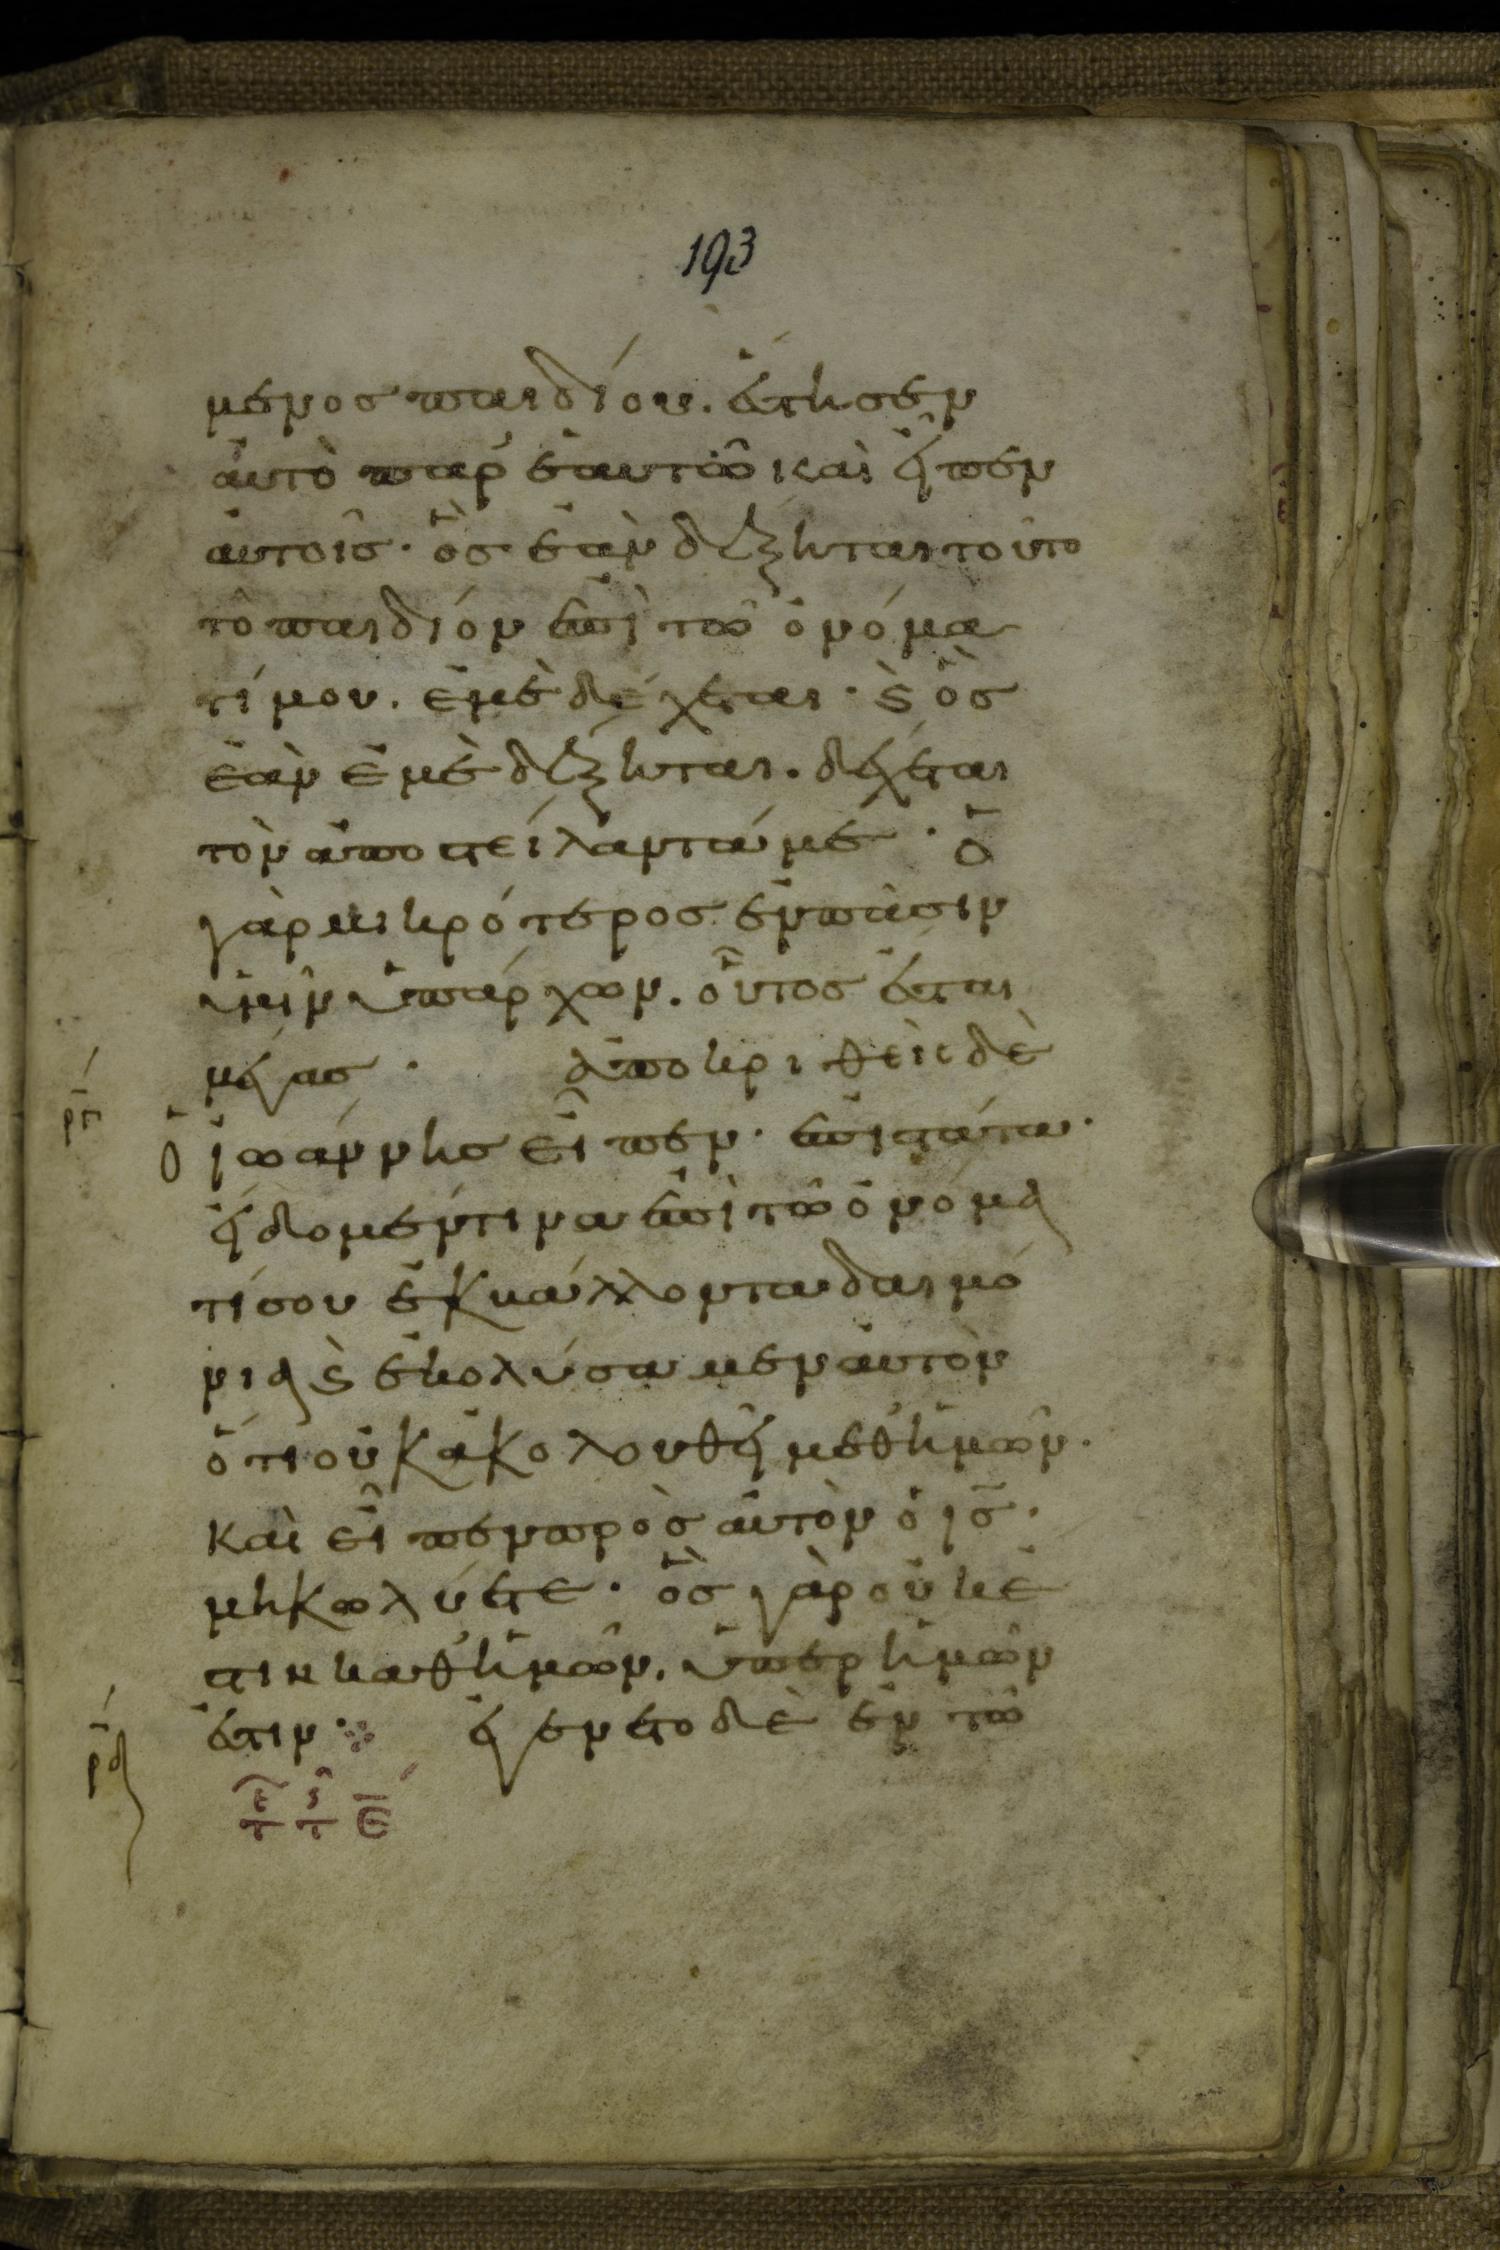 193
μενος παιδίου. έστησεν
αὐτὸ παρ' ἑαυτῶ και εἶπεν
αὐτοῖς· ὃς ἐὰν δέξηται τοῦτο
τὸ παιδίον ἐπὶ τῶ ὀνόμα
τί μου. ἐμὲ δέχεται· ϗ ὃς
ἐὰν ἐμὲ δέξηται. δέχεται
τὸν ἀποστείλαντά με· ὁ
γὰρ μικρότερος ἐν πᾶσιν
ὑμῖν ὑπάρχων. οὗτος ἔσται
μέγας· ἀποκριθεὶς δὲ
ρπ
ὁ ἰωάννης εἶπεν· ἐπιστάτα·
εἴδομέν τινα ἐπὶ τῶ ὀνόμα
τί σου ἐκβάλλοντα δαιμό
νια ϗ ἐκολύσαμεν αὐτὸν
ὅτι οὐκ ἀκολουθεῖ μεθ' ἡμῶν·
καὶ εἶπεν πρὸς αὐτὸν ὁ ι̅ς̅·
μὴ κωλύετε· ὃς γὰρ οὐκ ἔ
στιν καθ' ἡμῶν. ὑπὲρ ἡμῶν
ἐστιν· ἐγένετο δὲ ἐν τῶ
ρα